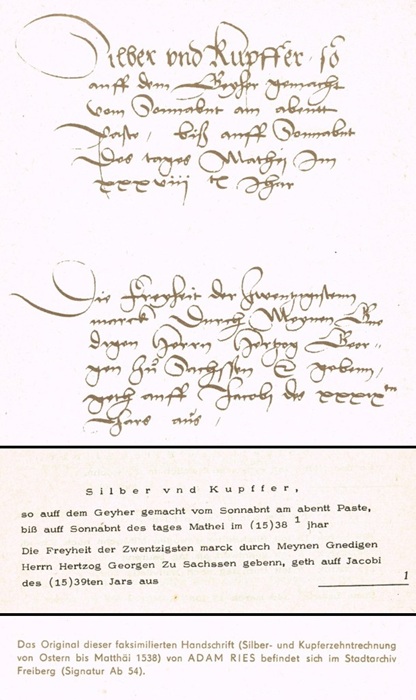 Silber vnd Kupffer, so
auff dem Geyher gemacht
vom Sonnabnt am abentt
Paste, biß auff Sonnabnt
des tages Mathei Im
xxxviij tē Jhar
Die Freyheit der Zwenzigistenn
marck Durch Meynen Gne
digen Herrn Hertzog Geor-
gen Zu Sachssen &c gebenn,
geth auff Jacobi des xxxix tn
Jars aus,
Silber vnd Kupffer,
so auff dem Geyher gemacht vom Sonnabnt am abentt Paste,
biß auff Sonnabnt des tages Mathei im (15)38 1 jhar
Die Freyheit der Zwentzigsten marck durch Meynen Gnedigen
Herrn Hertzog Georgen Zu Sachssen gebenn, geth auff Jacobi
des (15)39ten Jars aus
1
Das Original dieser faksimilierten Handschrift (Silber- und Kupferzehntrechnung
von Ostern bis Matthäi 1538) von ADAM RIES befindet sich im Stadtarchiv
Freiberg (Signatur Ab 54).